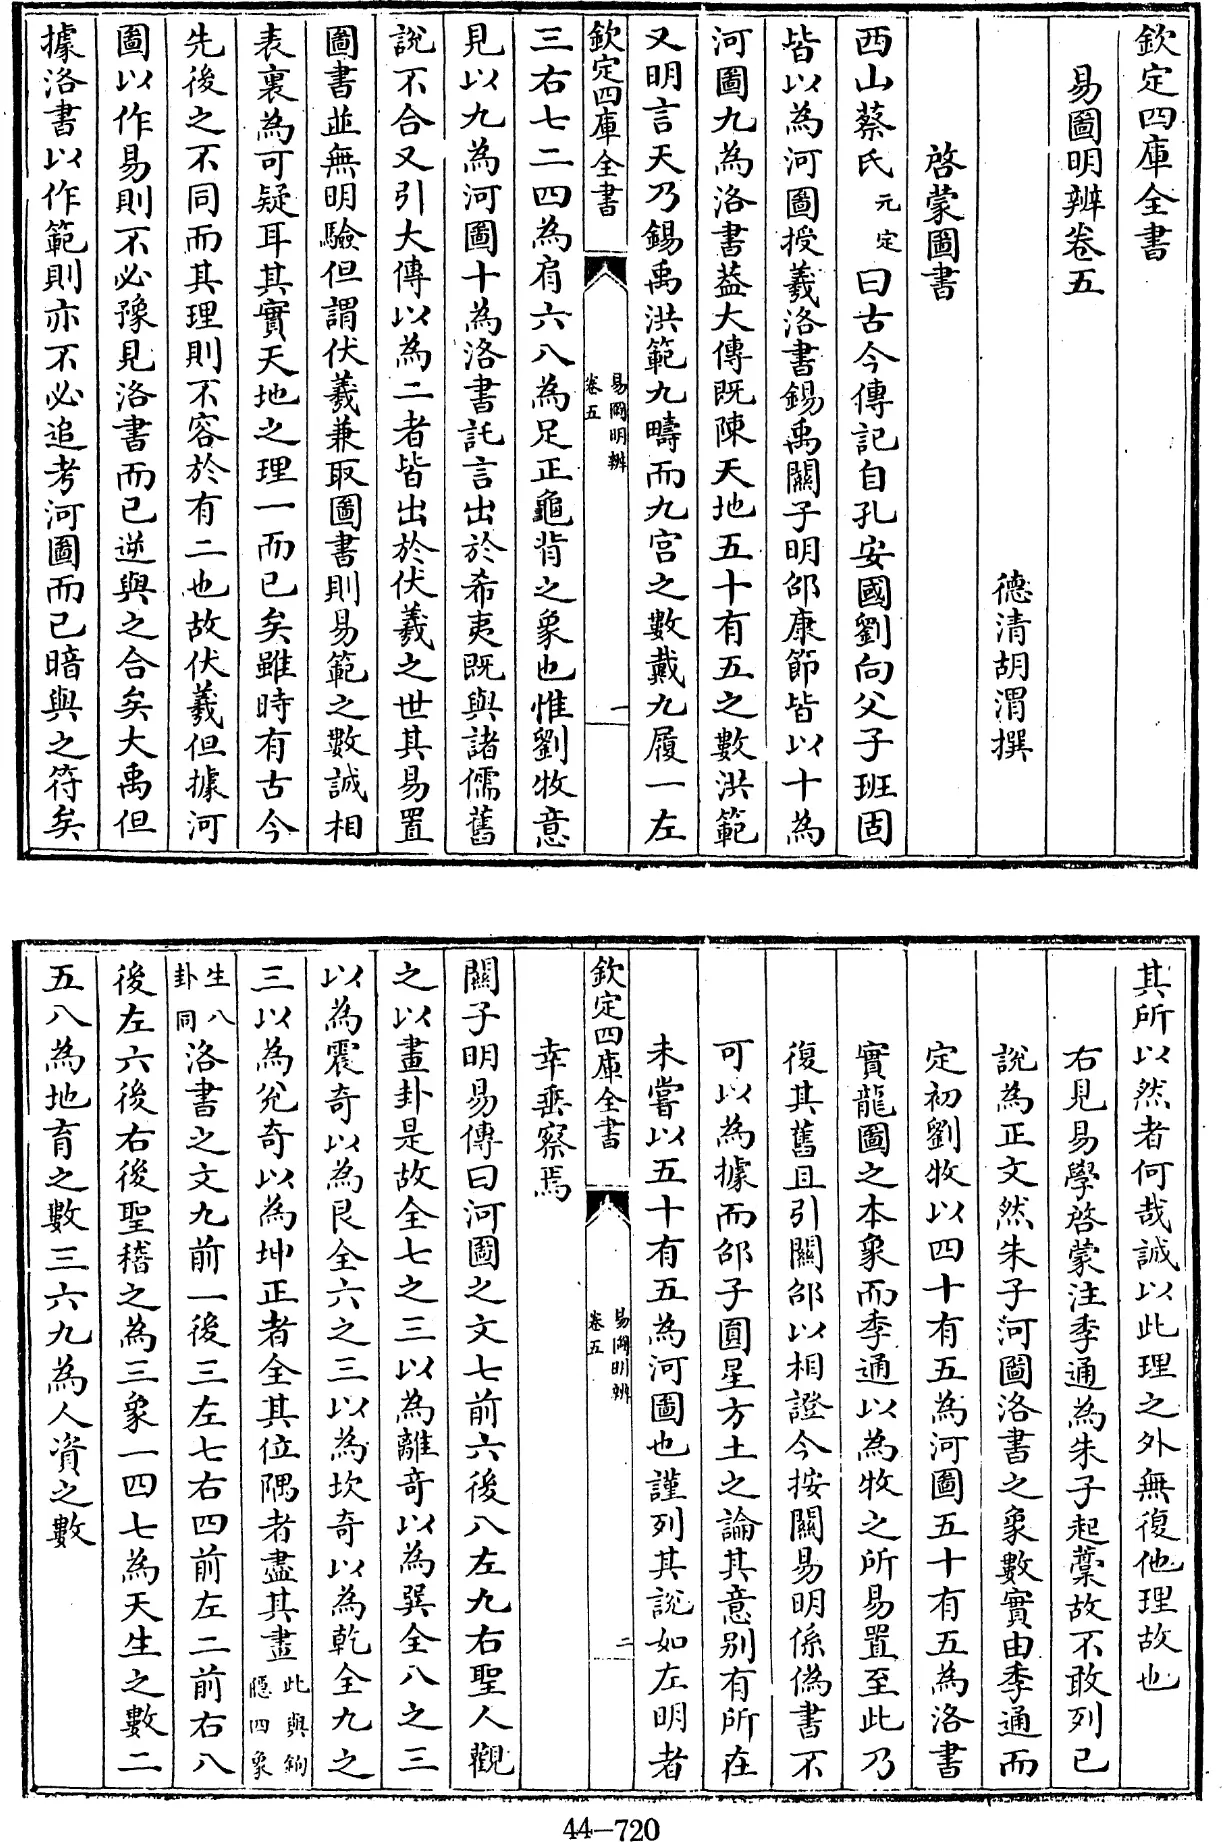 欽定四庫全書
易圖明辨卷五
德清胡渭撰
啓蒙圖書
西山蔡氏元定曰古今傳記自孔安國劉向父子班固
皆以為河圖授羲洛書錫禹關子明邵康節皆以十為
河圖九為洛書葢大傳既陳天地五十有五之數洪範
又明言天乃錫禹洪範九疇而九宫之數戴九履一左
欽定四庫全書
易圖明辨
卷五
一
三右七二四為肩六八為足正龜背之象也惟劉牧意
見以九為河圖十為洛書託言出於希夷既與諸儒舊
說不合又引大傳以為二者皆出於伏羲之世其易置
圖書並無明驗但謂伏羲兼取圖書則易範之數誠相
表裏為可疑耳其實天地之理一而已矣雖時有古今
先後之不同而其理則不容於有二也故伏羲但據河
圖以作易則不必豫見洛書而已逆與之合矣大禹但
據洛書以作範則亦不必追考河圖而已暗與之符矣
其所以然者何哉誠以此理之外無復他理故也
右見易學啓蒙注季通為朱子起藁故不敢列已
說為正文然朱子河圖洛書之象數實由季通而
定初劉牧以四十有五為河圖五十有五為洛書
實龍圖之本象而季通以為牧之所易置至此乃
復其舊且引關邵以相證今按關易明係偽書不
可以為據而邵子圓星方土之論其意别有所在
未嘗以五十有五為河圖也謹列其說如左明者
欽定四庫全書
易圖明辨
卷五
二
幸垂察焉
關子明易傳曰河圖之文七前六後八左九右聖人觀
之以畫卦是故全七之三以為離奇以為巽全八之三
以為震奇以為艮全六之三以為坎奇以為乾全九之
三以為兌奇以為坤正者全其位隅者盡其畫此與鉤隱四象
生八卦同洛書之文九前一後三左七右四前左二前右八
後左六後右後聖稽之為三象一四七為天生之數二
五八為地育之數三六九為人資之數
44-720